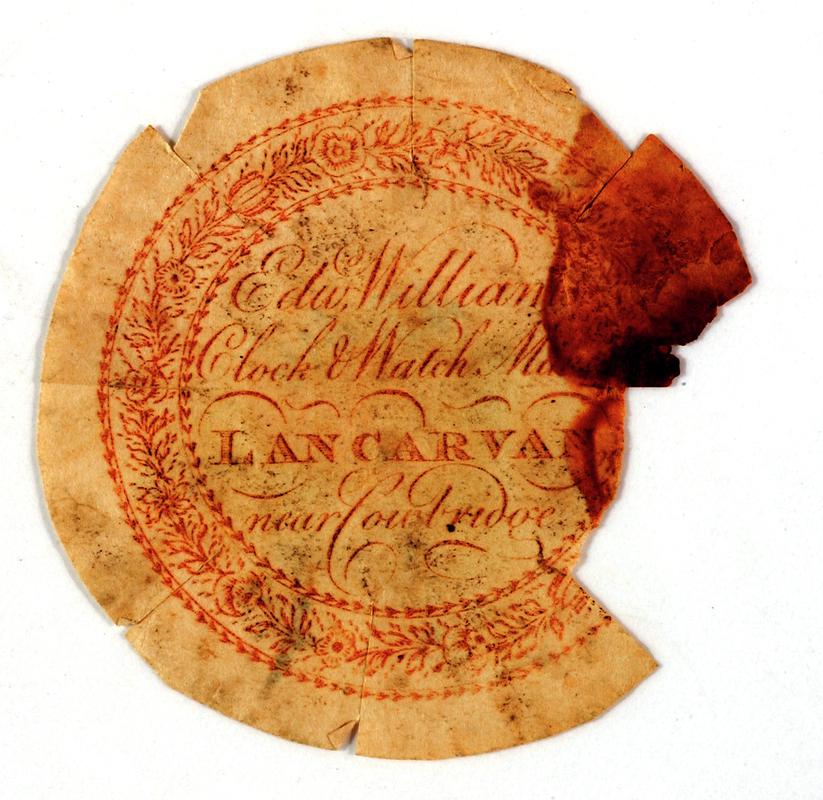 Edw. William
Clock & Watch Ma
LANCARVAN
near Cowbridge